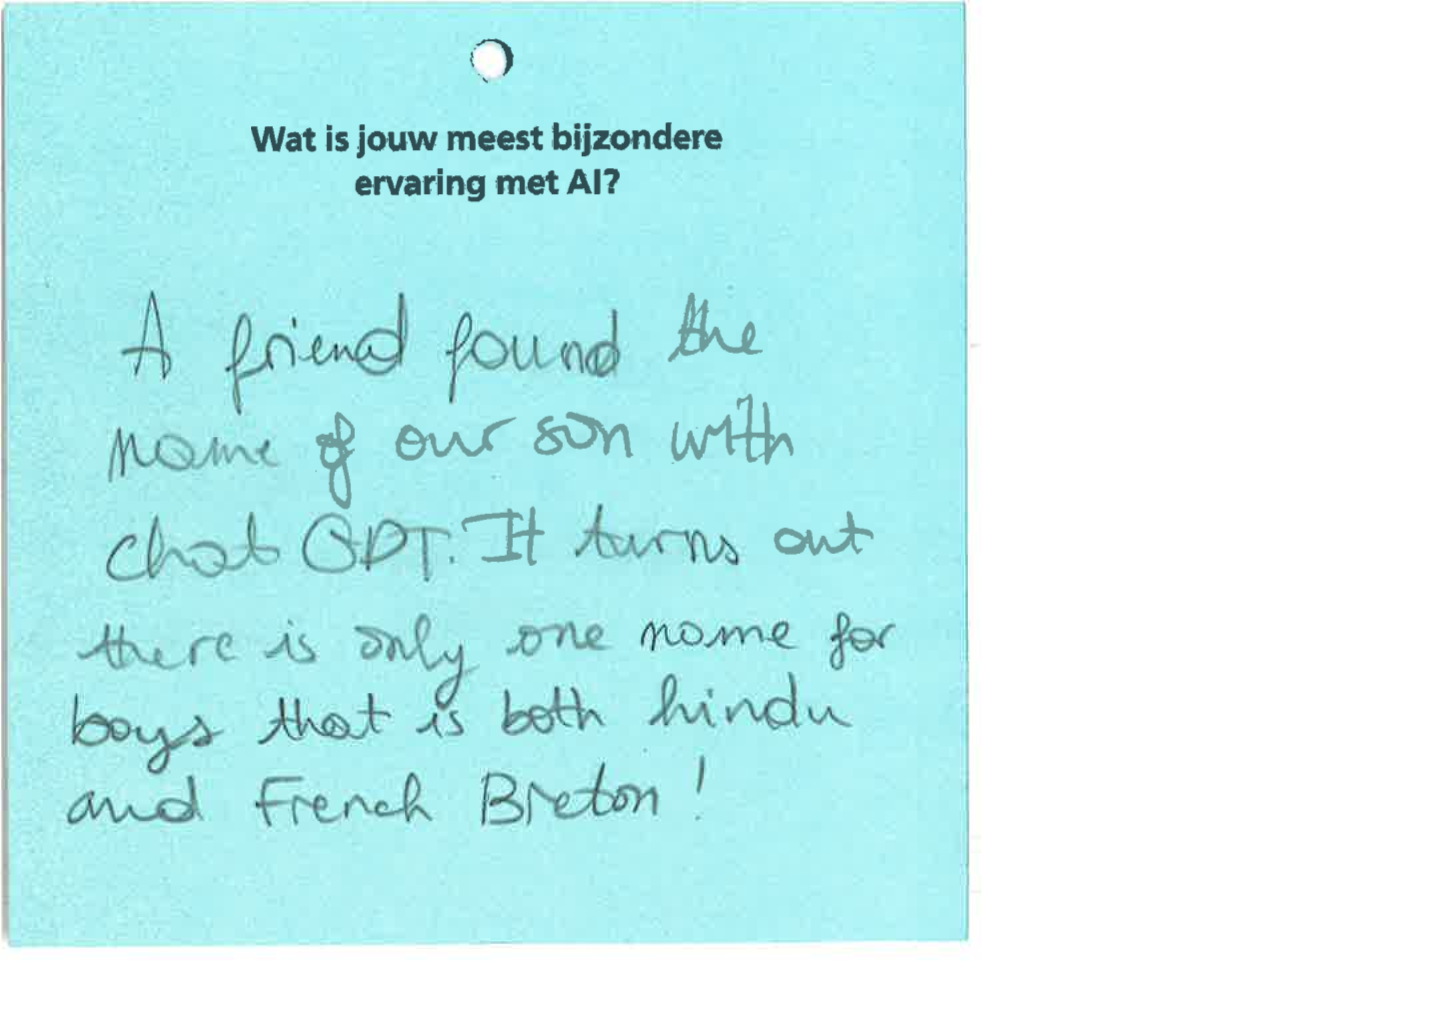 Wat is jouw meest bijzondere
ervaring met AI?
A friend found the
name of our son with
chat GPT. It turns out
there is only one name for
boys that is both hindu
and French Breton!